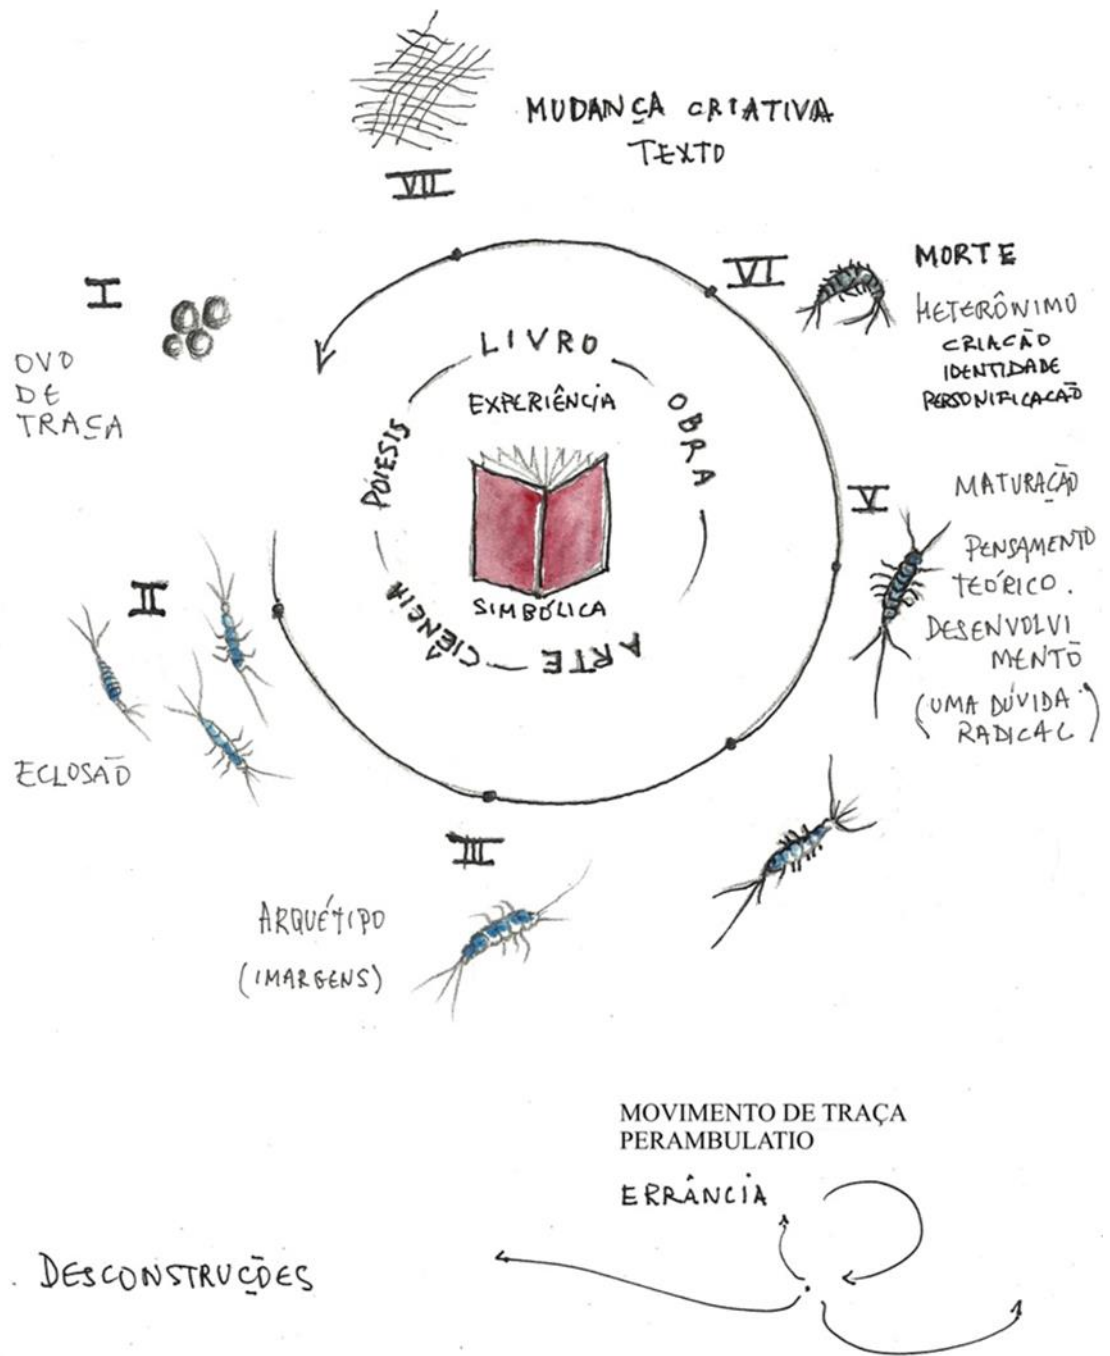 MUDANÇA CRIATIVA
TEXTO
VII
I
OVO
DE
TRAÇA
VI
MORTE
HETERÔNIMO
CRIAÇÃO
IDENTIDADE
PERSONIFICAÇÃO
LIVRO
OBRA
ARTE
CIÊNCIA
PÓIESIS
EXPERIÊNCIA
SIMBÓLICA
V
MATURAÇÃO
PENSAMENTO
TEÓRICO.
DESENVOLVI
MENTO
(UMA DÚVIDA
RADICAL)
II
ECLOSÃO
III
ARQUÉTIPO
(IMARGENS)
MOVIMENTO DE TRAÇA
PERAMBULATIO
ERRÂNCIA
. DESCONSTRUÇÕES